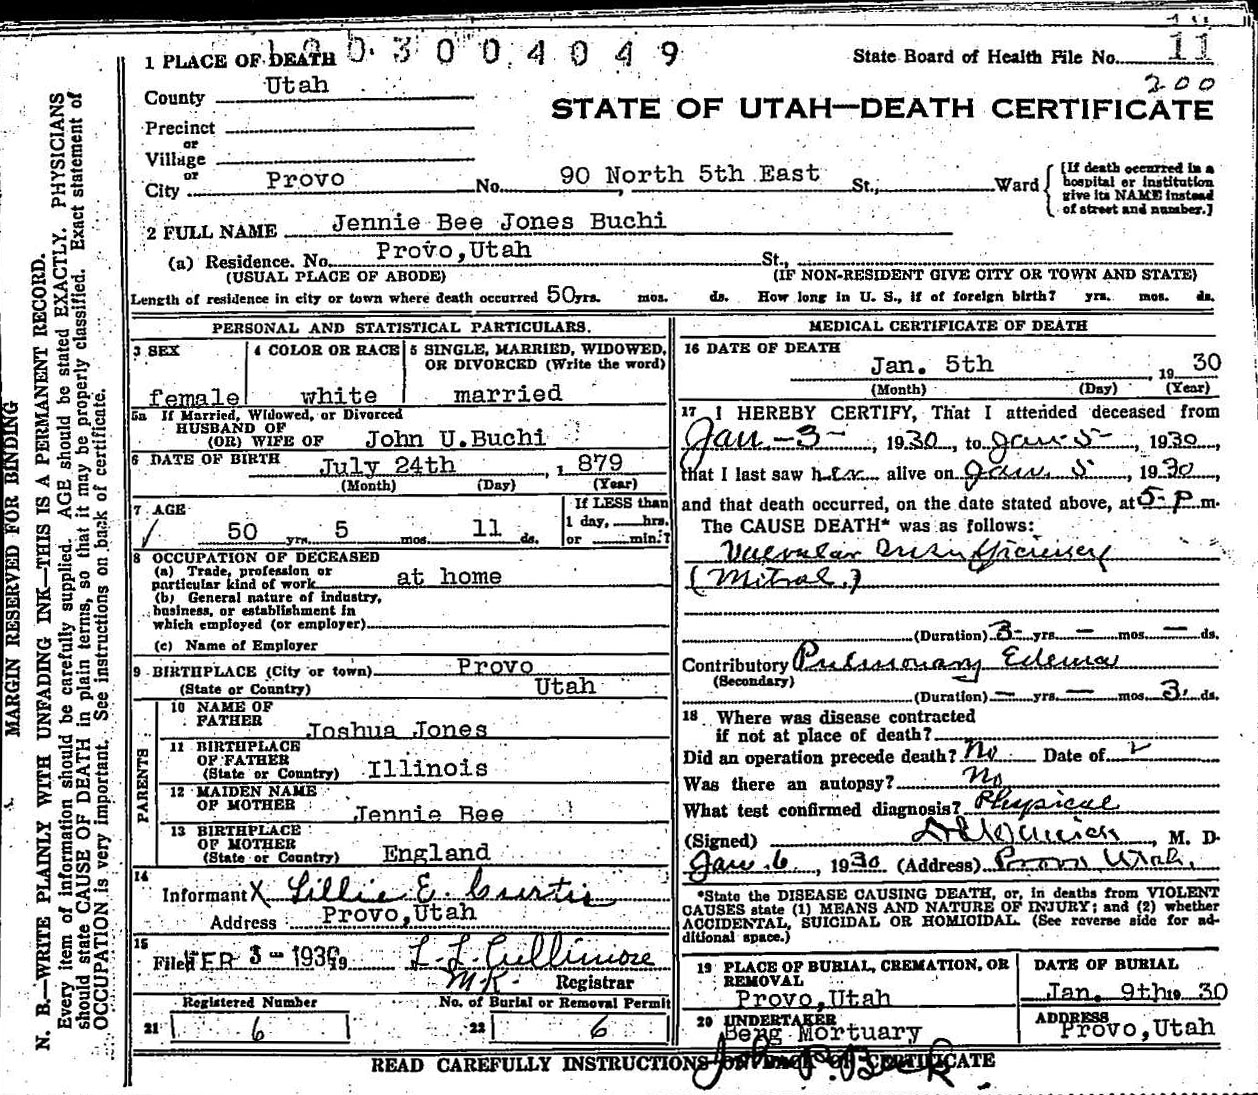 3 0 0 4 0 4 9
State Board of Health File No. 11
200
1 PLACE OF DEATH
County Utah
STATE OF UTAH—DEATH CERTIFICATE
Precinct
or
Village
or
City Provo No. 90 North 5th East St., Ward
[If death occurred in a hospital or institution give its NAME instead of street and number.]
2 FULL NAME Jennie Bee Jones Buchi
(a) Residence. No. Provo, Utah St.,
(USUAL PLACE OF ABODE) (IF NON-RESIDENT GIVE CITY OR TOWN AND STATE)
Length of residence in city or town where death occurred 50 yrs. mos. ds. How long in U. S., if of foreign birth? yrs. mos. ds.
PERSONAL AND STATISTICAL PARTICULARS.
3 SEX female
4 COLOR OR RACE white
5 SINGLE, MARRIED, WIDOWED, OR DIVORCED (Write the word) married
5a If Married, Widowed, or Divorced
HUSBAND OF
(OR) WIFE OF John U. Buchi
6 DATE OF BIRTH July 24th, 1 879
(Month) (Day) (Year)
7 AGE 50 yrs. 5 mos. 11 ds.
If LESS than 1 day, hrs. or min.?
8 OCCUPATION OF DECEASED
(a) Trade, profession or particular kind of work at home
(b) General nature of industry, business, or establishment in which employed (or employer)
(c) Name of Employer
9 BIRTHPLACE (City or town) Provo
(State or Country) Utah
PARENTS
10 NAME OF FATHER Joshua Jones
11 BIRTHPLACE OF FATHER (State or Country) Illinois
12 MAIDEN NAME OF MOTHER Jennie Bee
13 BIRTHPLACE OF MOTHER (State or Country) England
14
Informant X Lillie E. Curtis
Address Provo, Utah
15
Filed FEB 3 - 1930 19 L. L. Cullimore
M.K. Registrar
Registered Number
21 6
No. of Burial or Removal Permit
22 6
MEDICAL CERTIFICATE OF DEATH
16 DATE OF DEATH
Jan. 5th, 19 30
(Month) (Day) (Year)
17 I HEREBY CERTIFY, That I attended deceased from
Jan - 3 -, 1930, to Jan 5 -, 1930,
that I last saw her alive on Jan. 5, 1930
and that death occurred, on the date stated above, at 5-p m.
The CAUSE DEATH* was as follows:
Valvular Insufficiency
(Mitral.)
(Duration) 3 yrs. — mos. — ds.
Contributory Pulmonary Edema
(Secondary)
(Duration) — yrs. — mos. 3. ds.
18 Where was disease contracted
if not at place of death?
Did an operation precede death? No Date of
Was there an autopsy? No
What test confirmed diagnosis? Physical
(Signed) M. D.
Jan. 6, 1930 (Address) Provo Utah.
*State the DISEASE CAUSING DEATH, or, in deaths from VIOLENT
CAUSES state (1) MEANS AND NATURE OF INJURY; and (2) whether
ACCIDENTAL, SUICIDAL OR HOMICIDAL. (See reverse side for ad-
ditional space.)
19 PLACE OF BURIAL, CREMATION, OR REMOVAL
Provo, Utah
DATE OF BURIAL
Jan. 9th 30
20 UNDERTAKER
Berg Mortuary
ADDRESS
Provo, Utah
READ CAREFULLY INSTRUCTIONS ON BACK OF CERTIFICATE
MARGIN RESERVED FOR BINDING
N. B.—WRITE PLAINLY WITH UNFADING INK—THIS IS A PERMANENT RECORD.
Every item of information should be carefully supplied. AGE should be stated EXACTLY. PHYSICIANS
should state CAUSE OF DEATH in plain terms, so that it may be properly classified. Exact statement of
OCCUPATION is very important. See instructions on back of certificate.